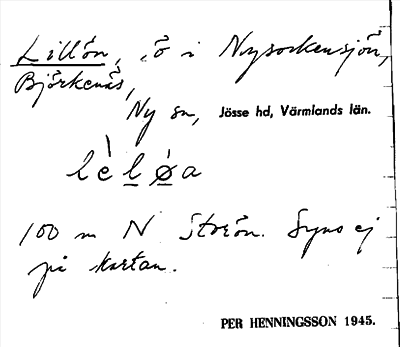 Lillön, ö i Nysockensjön,
Björkenäs,
Ny sn, Jösse hd, Värmlands län.
lèløa
100 m N Storön. Syns ej
på kartan.
PER HENNINGSSON 1945.